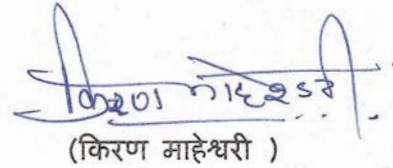 किरण माहेश्वरी
(किरण माहेश्वरी )